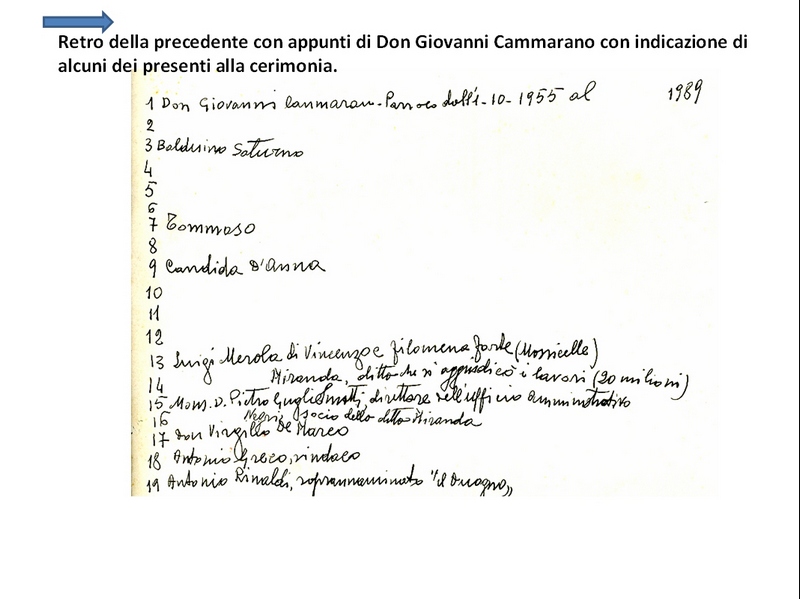 Retro della precedente con appunti di Don Giovanni Cammarano con indicazione di
alcuni dei presenti alla cerimonia.
1 Don Giovanni Cammarano - Parroco dall'1-10-1955 al 1989
2
3 Balduino Saturno
4
5
6
7 Tommaso
8
9 Candida D'Anna
10
11
12
13 Luigi Merola di Vincenzo e Filomena Forte
14 Miranda, ditta che si aggiudicò i lavori (20 milioni)
15 Mons. D. Pietro Guglielmotti, direttore dell'ufficio amministrativo
16 socio della ditta Miranda
17 Don Virgilio De Marco
18 Antonio Greco, sindaco
19 Antonio Rinaldi, soprannominato